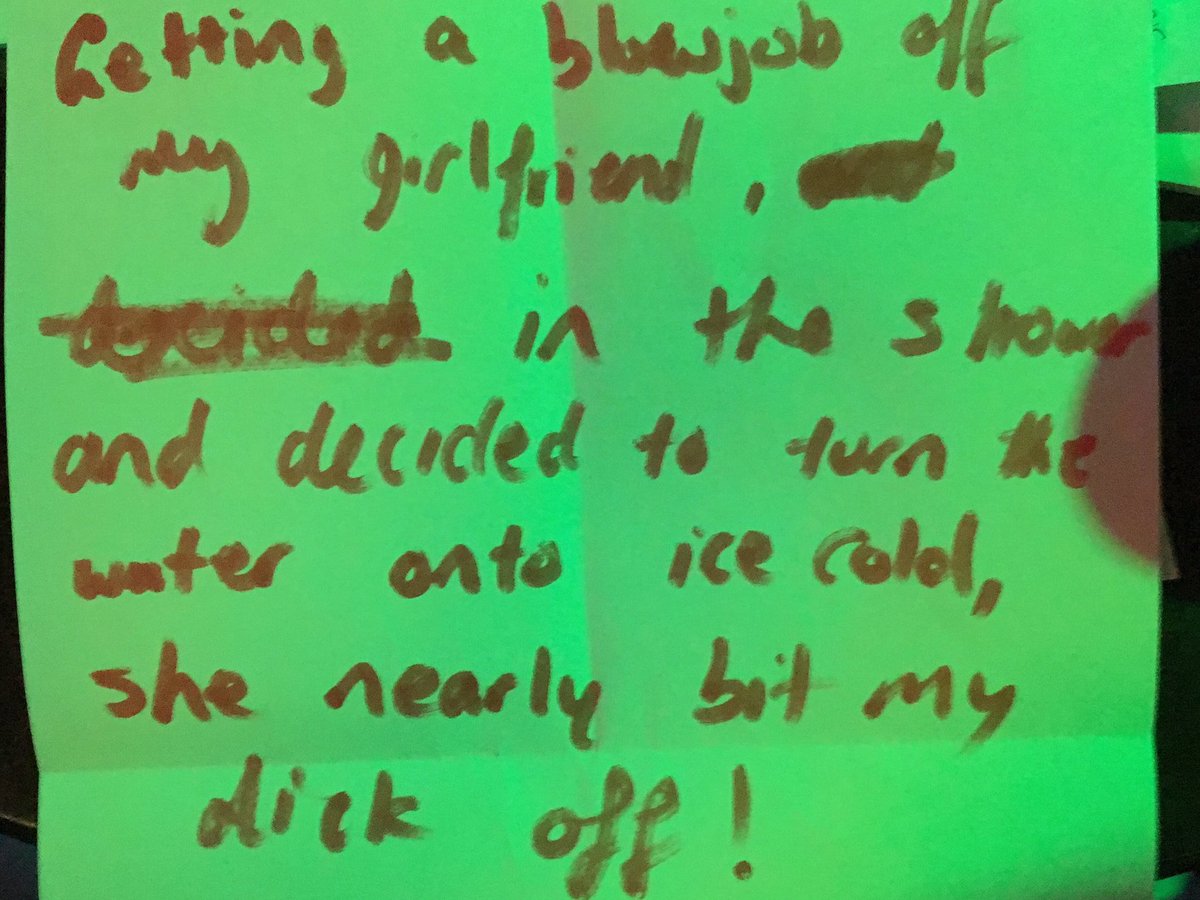 Getting a blowjob off
my girlfriend,
decided in the shower
and decided to turn the
water onto ice cold,
she nearly bit my
dick off!